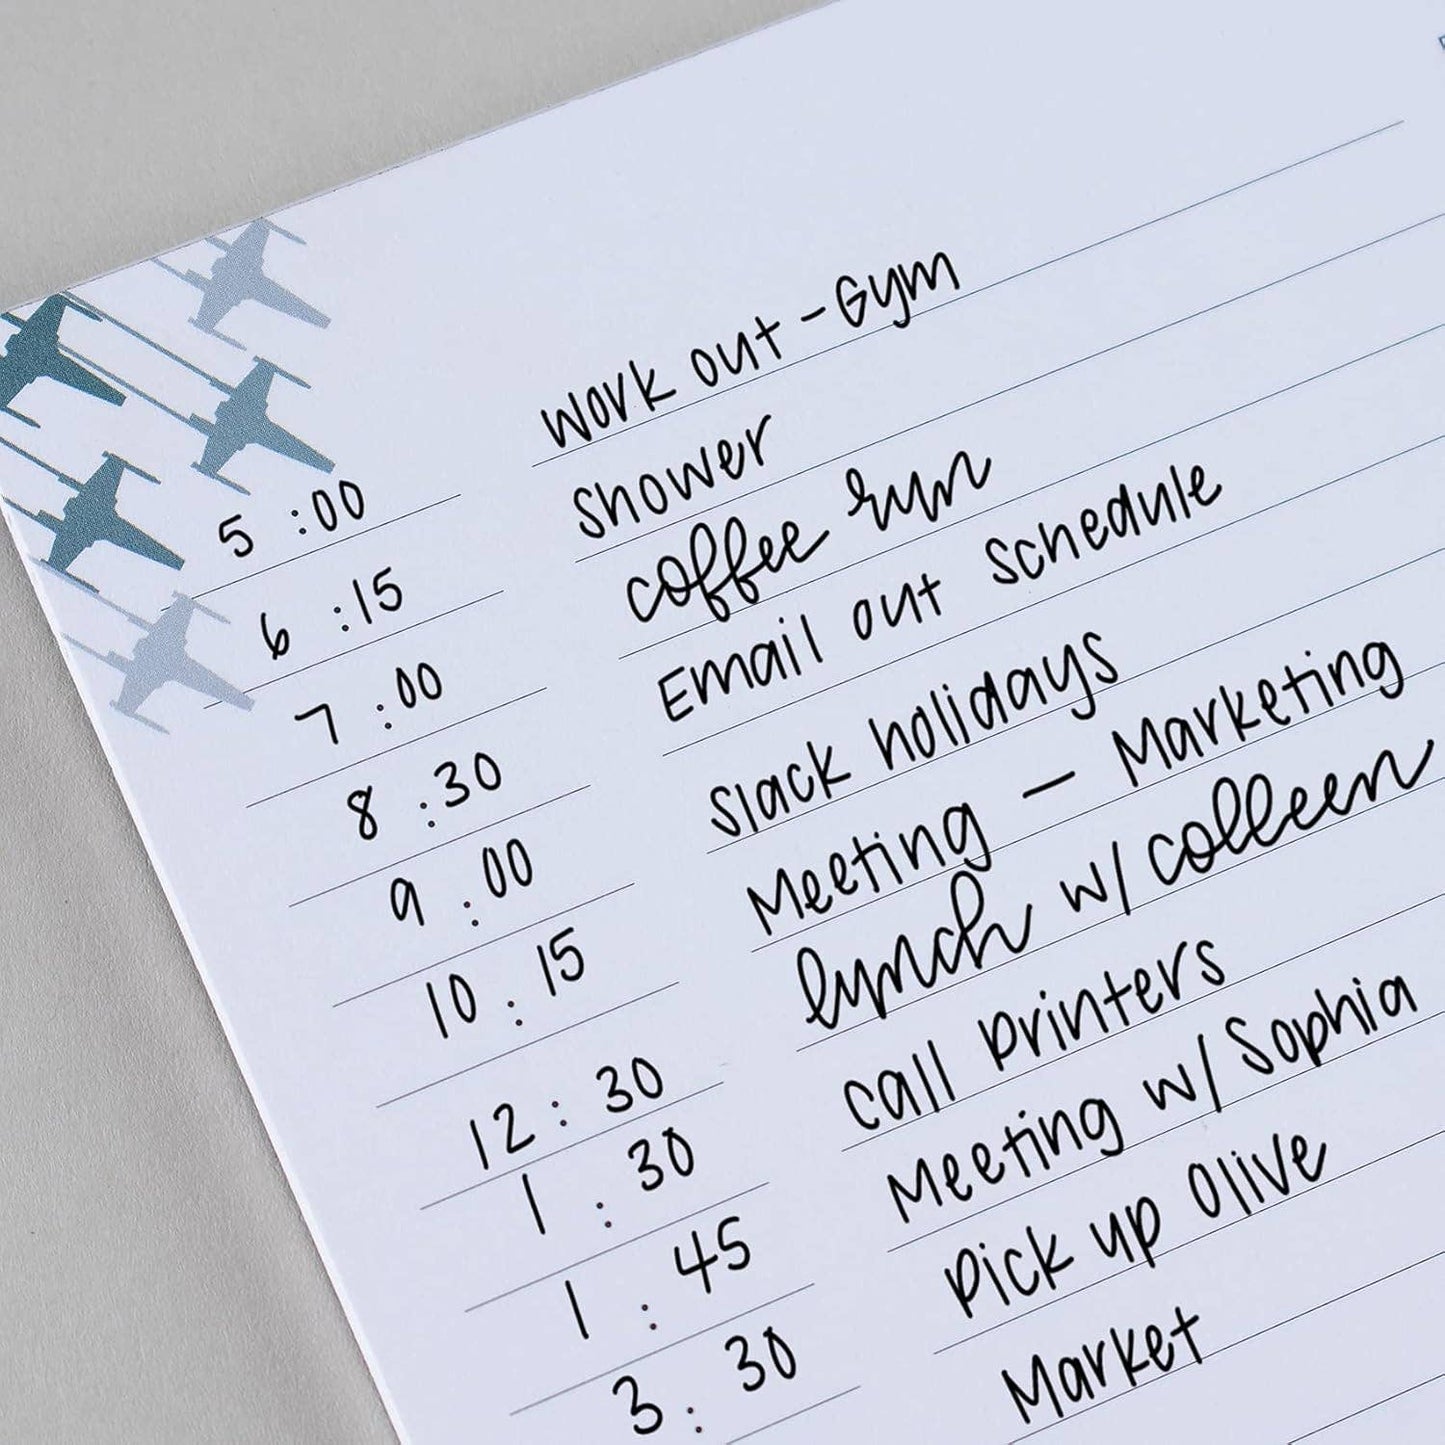 5:00 Work out - Gym
6:15 Shower
7:00 coffee run
8:30 Email out schedule
9:00 Slack holidays
10:15 Meeting - Marketing
12:30 lunch w/ colleen
1:30 call printers
1:45 Meeting w/ Sophia
3:30 Pick up Olive
Market